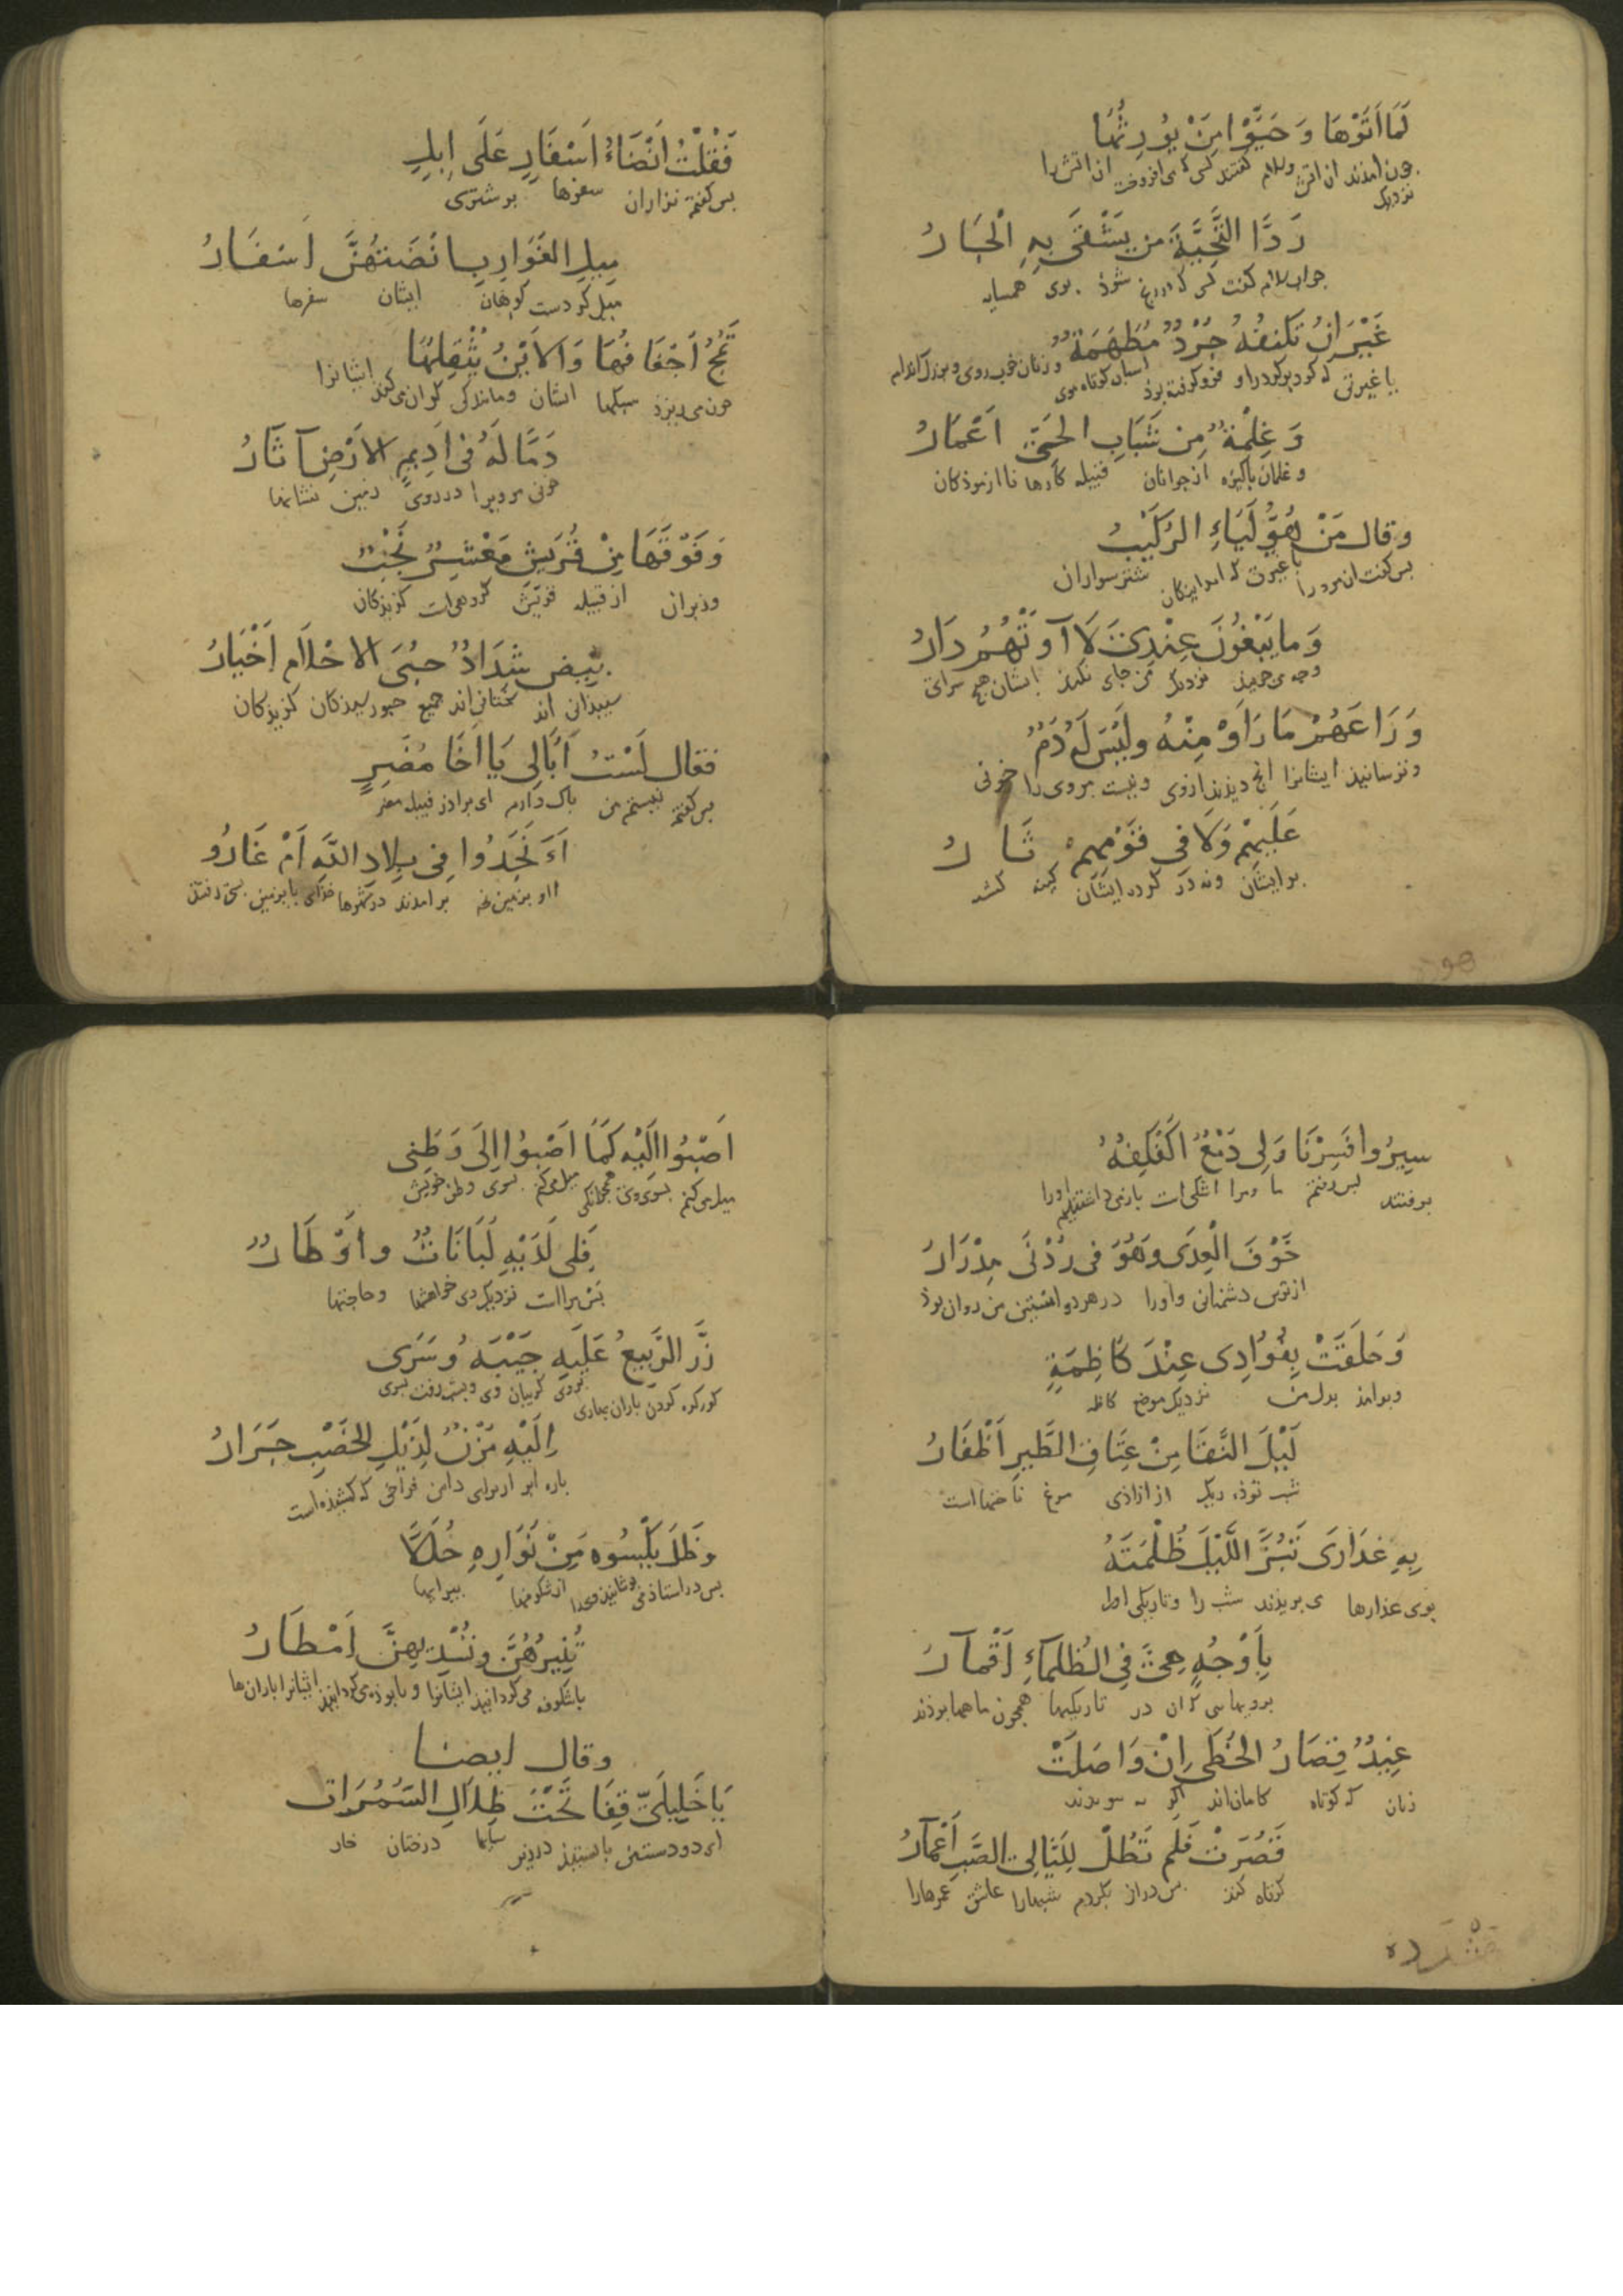 لَمَّا اَتَوْهَا وَ حَيَّوْا مَنْ يُورِثُهَا
جون امدند ان اتش وسلام گفتند کسی کی افروخت ان اتش را
نزدیک
رَدَّا التَّحِيَّةَ مَن يَشْقَى بِهِ الْجَارُ
جواب سلام گفت کسی که شوذ بوی همسایه
غَيْرَانُ تَكْنُفُهُ جُرْدٌ مُطَهَّمَةٌ
با غیرتی که گرد او فرو گرفته بوذ اسبان کوتاه موی
وَ غِلْمَةٌ مِن شَبَابِ الحَيِّ اَغْمَارُ
و غلمان پاکیزه از جوانان قبیله کارها نا ازموذکان
وقال مَنْ هٰؤُلَيَاءِ الرُّكَيْبُ
بس گفت ان مرد اینکان شترسواران
وَ مَا يَبْغُونَ عِنْدِي لَا آوَتْهُمُ دَارُ
نزدیک من جای نکند ایشان هیچ سرای
وَ رَاعَهُمْ مَا رَأَوْ مِنْهُ وليْسَ لَهُ دَمٌ
وترسانیذ ایشانرا انج دیذند ازوی ونیست مروی را خونی
عَلَيْهِمْ وَلَا فِي قَوْمِهِمْ ثَارُ
بر ایشان ونه در گروه ایشان کینه کشد
فَقُلْتُ اَنْضَاءُ اَسْفَارٍ عَلَى اِبِلٍ
بس گفتم نزاران سفرها بر شتری
مِيلِ الغَوَارِبِ اَنْضَتْهُنَّ اَسْفَارُ
میل کردست کوهان ایشان سفرها
تَمُجُّ اَخْفَافُهَا وَالاَيْنُ يُثْقِلُهَا
خون می ریزذ سبلها ایشان وماندگی گران می کند ایشانرا
دَمًا لَهُ فِي اَدِيمِ الاَرْضِ آثَارُ
خونی مرویرا درروی زمین نشانها
وَ فَوْقَهَا مِنْ قُرَيْشٍ مَعْشَرٌ نُجُبٌ
وزبران از قبیله قریش گروهی ات گزیذکان
بِيضٌ شِدَادُ حُبَى الاحْلَامِ اَخْيَارُ
سپیذانی اند سختانی اند گزیذکان
فقال لَسْتُ اُبَالِي يَا اَخَا مُضَرٍ
بس گفتم نیستم من باک دارم ای براذر قبیله مضر
اَءَنْجَدُوا فِي بِلَادِ اللهِ اَمْ غَارُو
بر امدند در شهرها خدای
سِيرُوا فَسِرْنَا وَلِي دَمْعٌ اُكَفْكِفُهُ
برفتند بس رفتم ما ومرا اشکی ات باز می داشتم اورا
خَوْفَ الْعِدَى وهْوَ فى رُدْنَى مِدْرَارُ
از ترس دشمنانی واورا در هر دو استین من روان بوذ
وَ حَلَّقَتْ بِفُؤَادِى عِنْدَ كَاظِمَةٍ
وبرامذ بدل من نزدیک موضع کاظمه
لَيْلَ النَّقَا مِنْ عِتَاقِ الطَّيرِ اَظْفَارُ
شب توذه ریک از ازاذی مرغ ناخنها است
بِهِ عَذَارَى تَبُزُّ اللَّيْلَ ظُلْمَتَهُ
بوی عذارها می بریذند شب را وتاریکی او
بِاَوْجُهٍ هِيَ فِي الظُلَمَاءِ اَقْمَارُ
برویهایی که ان در تاریکیها همجون ماهها بوذند
غِيدٌ قِصَارُ الخُطَى اِنْ وَاصَلَتْ
زنان که کوتاه کامان اند اگر
قَصُرَتْ فَلَم تَطُلْ لِلَيَالِي الصَّبِّ اَعْمَارُ
کوتاه کند بس دراز نکردم شبهارا عاشق عمرهارا
اَصْبُوا اِلَيْهِ كَمَا اَصْبُوا اِلَى وَطَنِى
میل می کنم بسوی وی همجنانکی میل می کنم بسوی وطن خویش
فَلِى لَدَيْهِ لُبَانَاتٌ و اَوْطَارُ
بس مرا ات نزدیک وی خواهشها وحاجتها
زَرَّ الرَّبِيعُ عَلَيهِ جَيْبَهُ وَسَرَى
باران بهاری بروی گریبان وی وبشب رفت بسوی
اِلَيْهِ مُزْنٌ لِذَيْلِ الخَصْبِ جَرَارُ
باره ابر از برای دامن فراخی که کشیذه است
وظَلَّ يَلْبَسُوه مِنْ نَوَارِهِ حُلَلًا
از شکوفها
تُنِيرُهُنَّ وتُسْدِيهِنَّ اَمْطَارُ
باشکوفه می گردانیذ ایشانرا
وقال ايضا
يَا خَلِيلَيَّ قِفَا تَحْتَ ظِلَالِ السَّمُرَاتِ
ای دو دست من بایستیذ در زیر سایها درختان خار